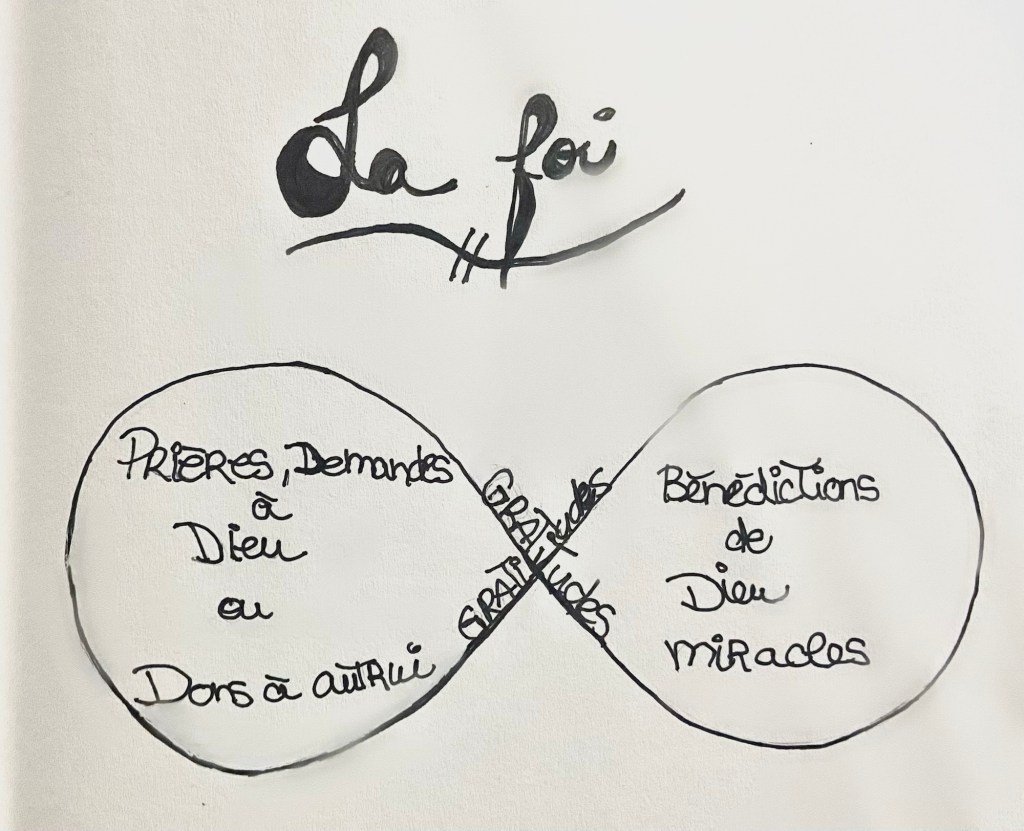 La foi
PRIÈRES, Demandes
à
Dieu
ou
Dons à autrui
GRATitudes
GRATitudes
Bénédictions
de
Dieu
miRacles